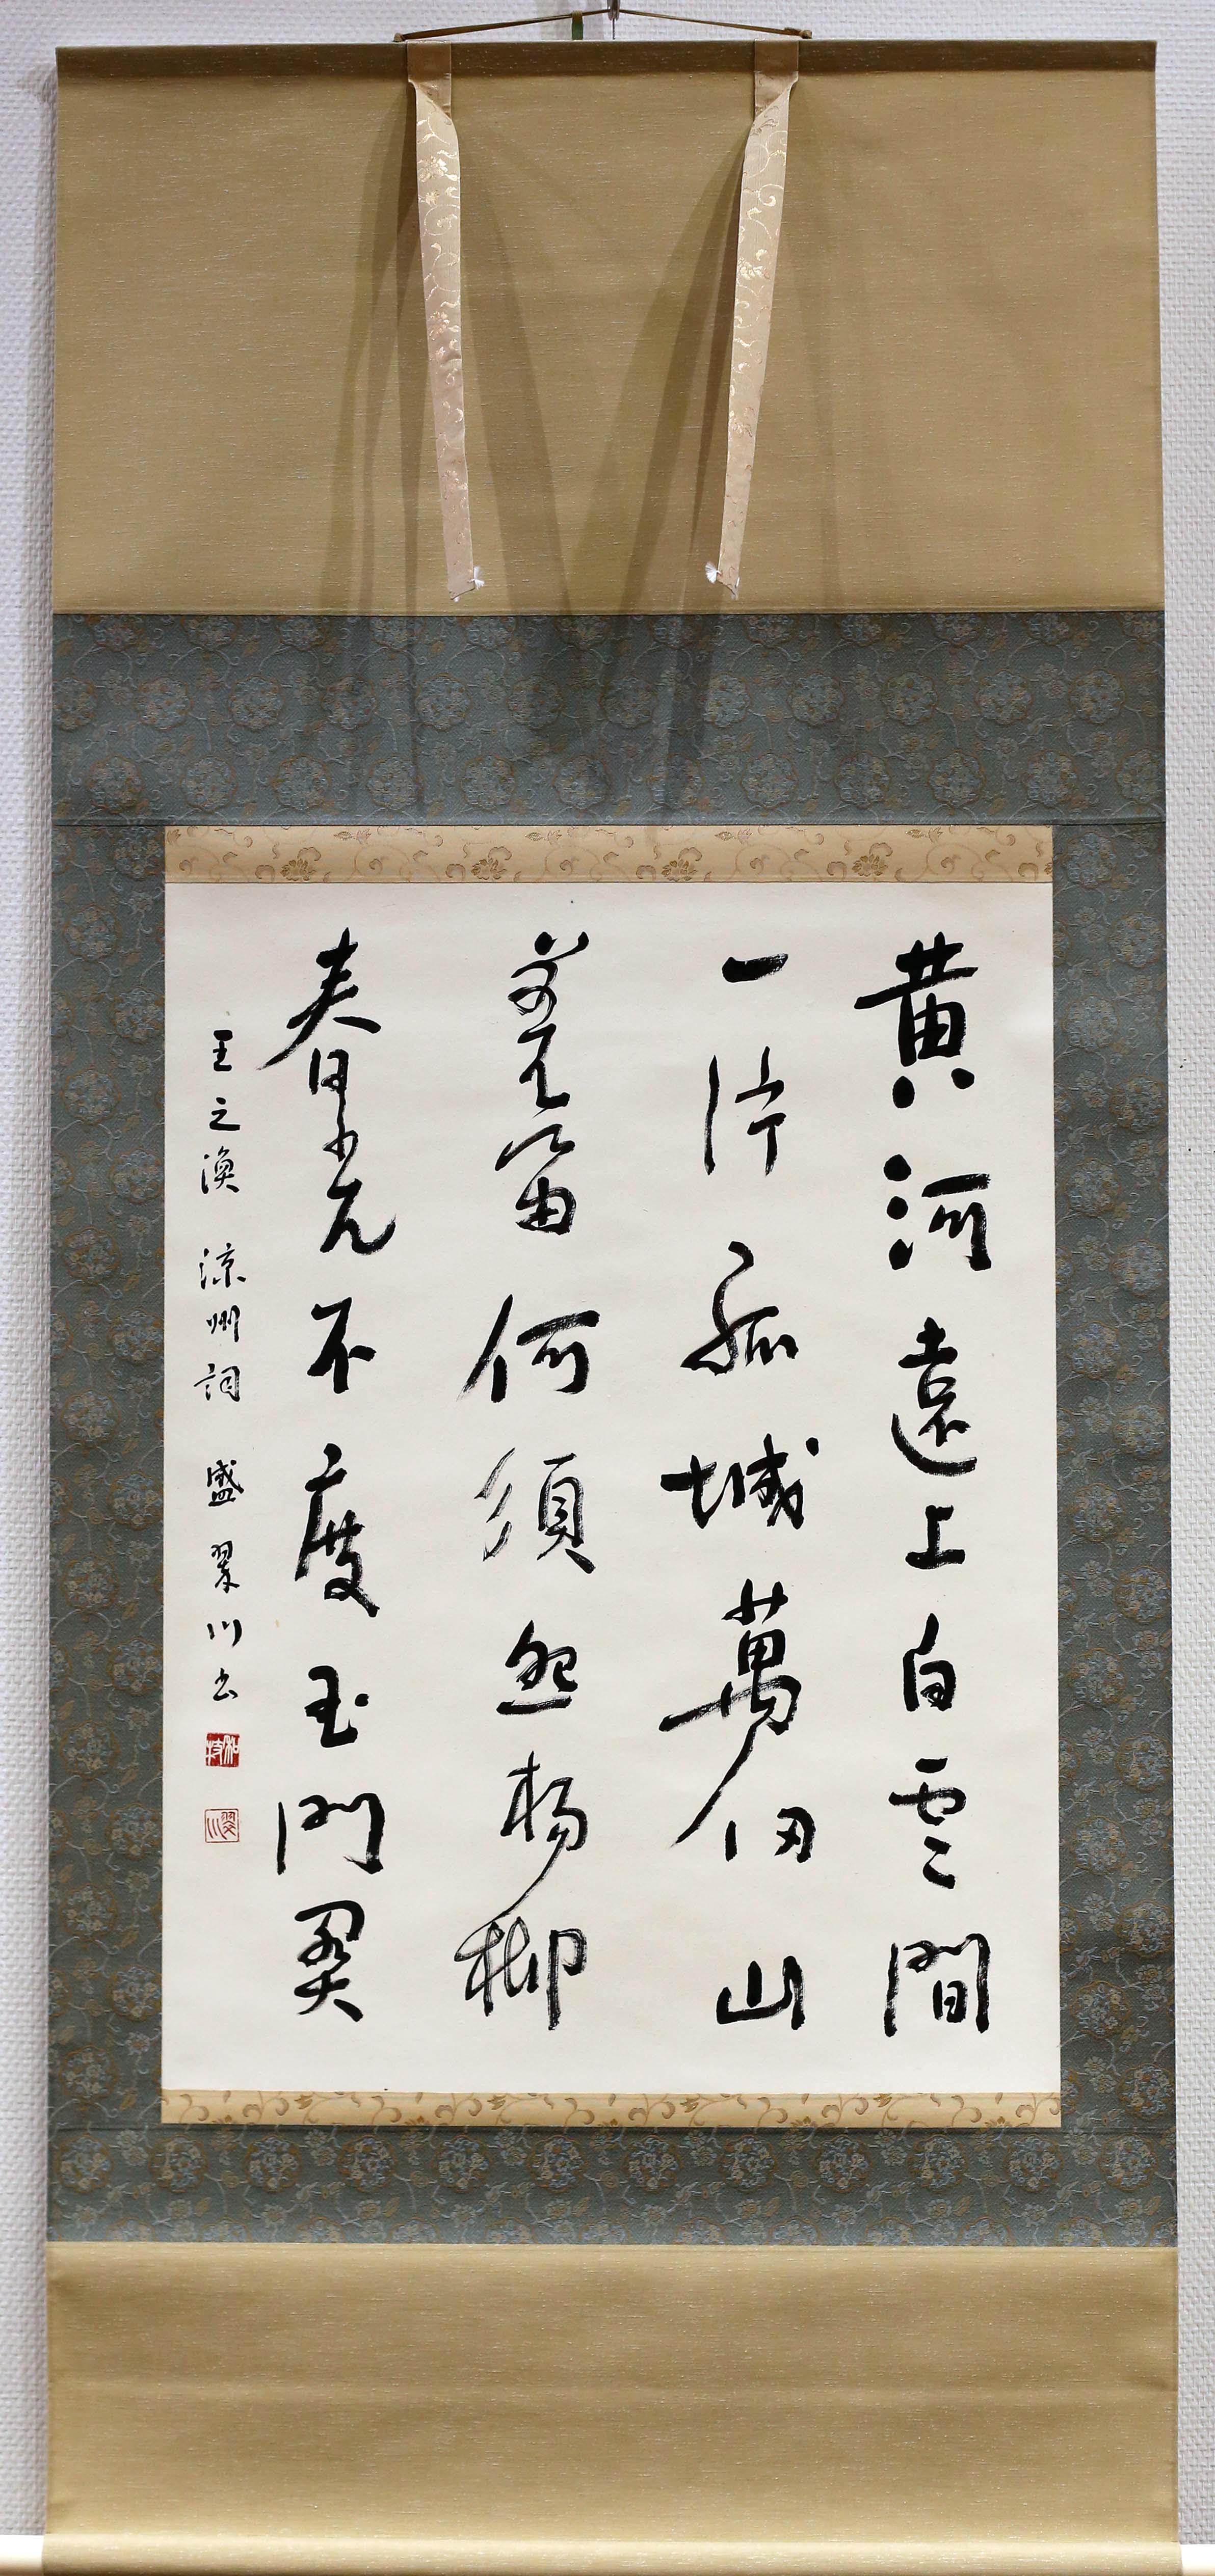 黄河遠上白雲間
一片孤城萬仞山
羌笛何須怨楊柳
春光不度玉門関
王之渙 涼州詞 盛翠川書
翠川